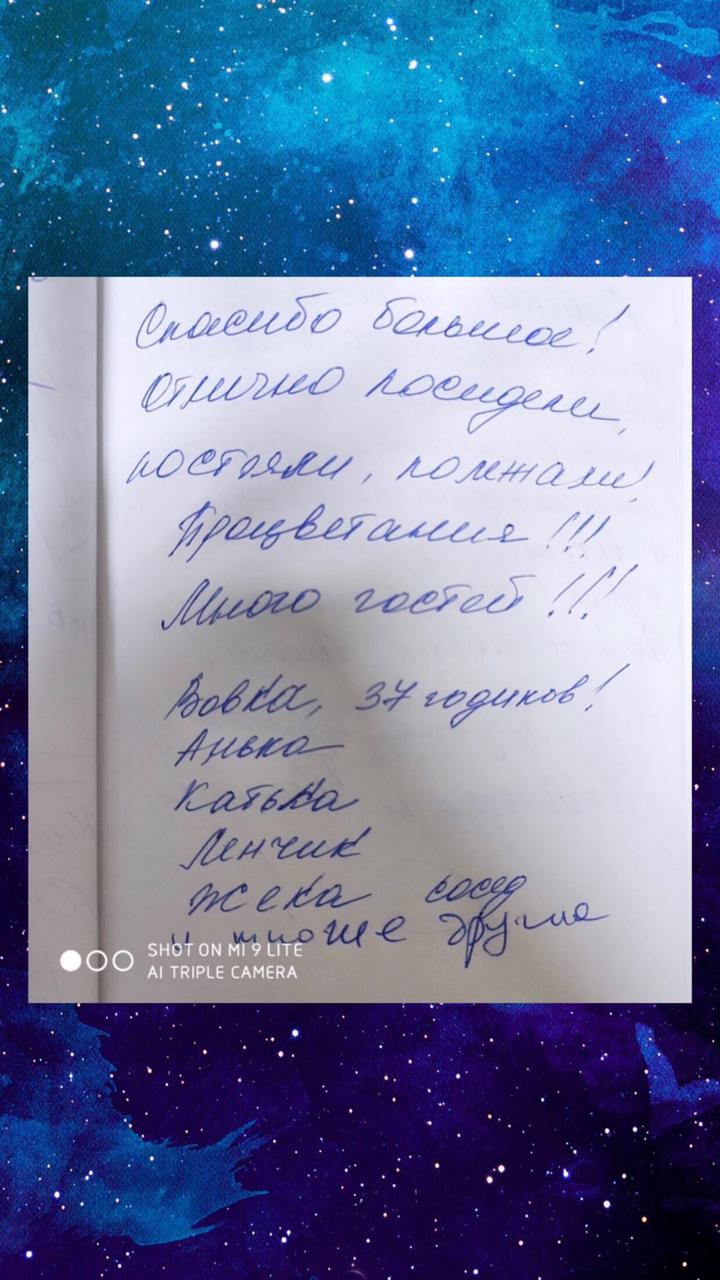 Спасибо большое!
Отлично посидели,
постояли, полежали!
Процветания!!!
Много гостей!!!
Вовка, 37 годиков!
Анька
Катька
Ленчик
Жека сосед
и многие другие
SHOT ON MI 9 LITE
AI TRIPLE CAMERA